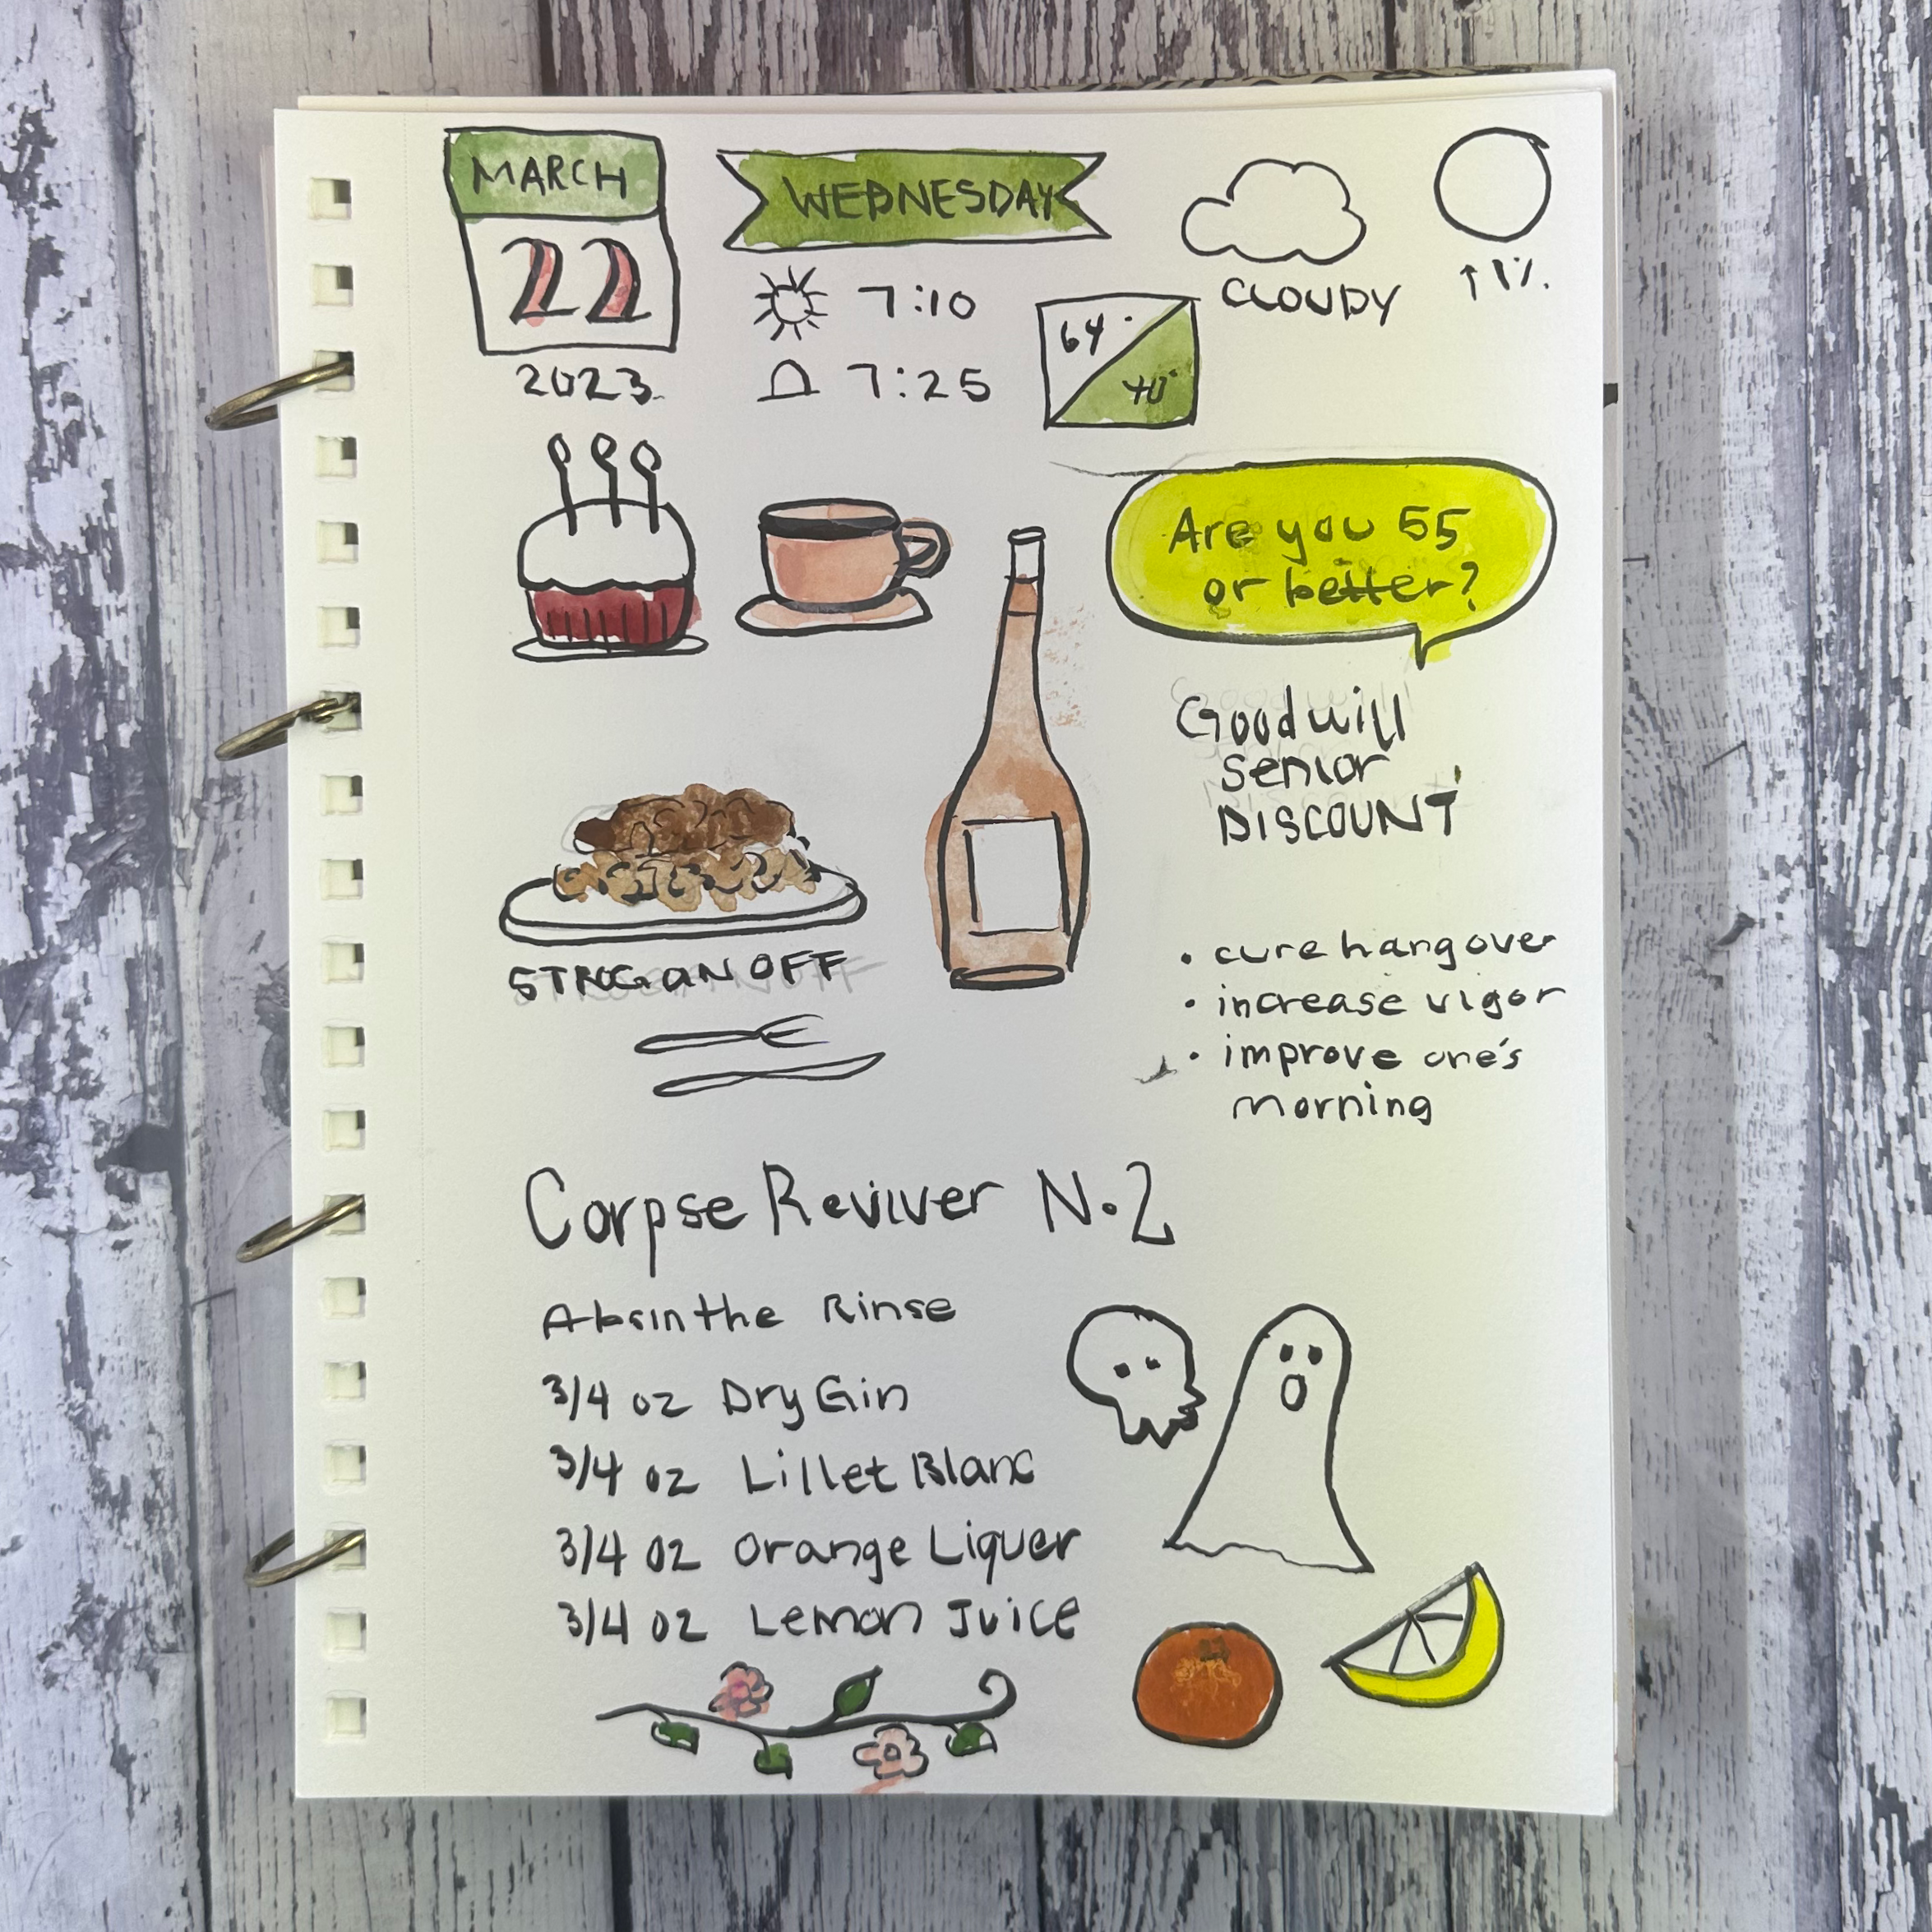 MARCH
22
2023
WEDNESDAY
7:10
7:25
64°
40°
CLOUDY
↑1%
Are you 55
or better?
Goodwill
senior
DISCOUNT
STROGANOFF
• cure hangover
• increase vigor
• improve one's
morning
Corpse Reviver N.2
Absinthe Rinse
3/4 oz Dry Gin
3/4 oz Lillet Blanc
3/4 oz Orange Liquer
3/4 oz Lemon Juice